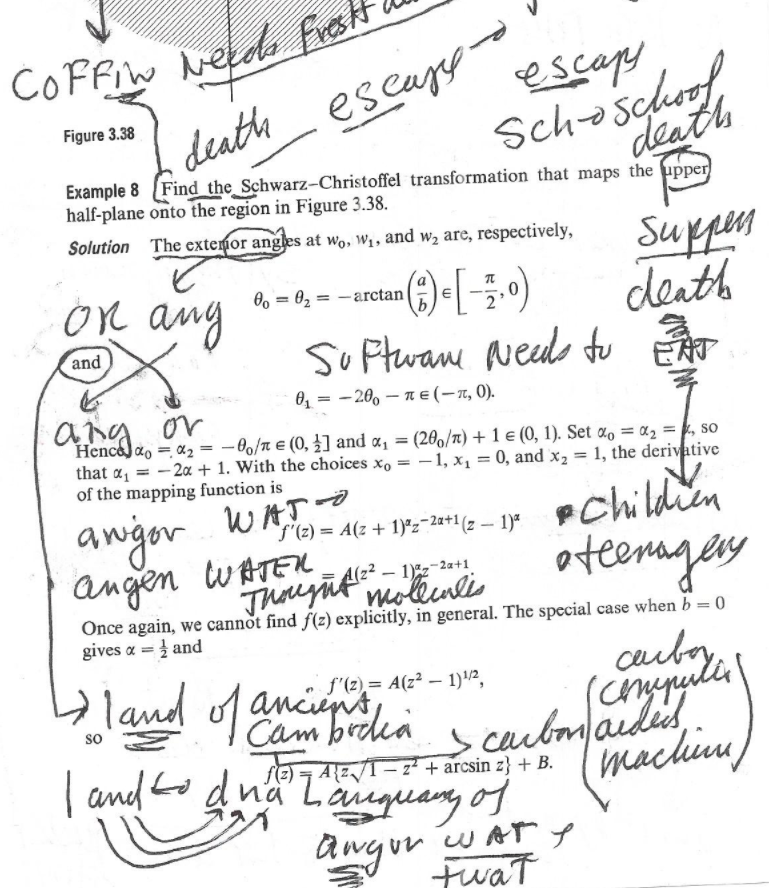 COFFIN Needs Fresh
escape → escape
death
Sch→School
death
Figure 3.38
Example 8 Find the Schwarz–Christoffel transformation that maps the upper
half-plane onto the region in Figure 3.38.
Solution The exterior angles at w₀, w₁, and w₂ are, respectively,
suppers
death
θ₀ = θ₂ = −arctan(a/b) ∈ [−π/2, 0)
OR ang
Software Needs to EAT
and
θ₁ = −2θ₀ − π ∈ (−π, 0).
ang or
Hence, α₀ = α₂ = −θ₀/π ∈ (0, ½] and α₁ = (2θ₀/π) + 1 ∈ (0, 1). Set α₀ = α₂ = α, so
that α₁ = −2α + 1. With the choices x₀ = −1, x₁ = 0, and x₂ = 1, the derivative
of the mapping function is
angor WAT →
f′(z) = A(z + 1)^α z^(−2α+1) (z − 1)^α
• Children
angen WATER
= A(z² − 1)^α z^(−2α+1)
• teenagers
Thought molecules
Once again, we cannot find f(z) explicitly, in general. The special case when b = 0
gives α = ½ and
f′(z) = A(z² − 1)^(1/2),
carbon
computer
aided
machine
land of ancient
Cambodia
carbon
so
f(z) = A{z√(1 − z²) + arcsin z} + B.
land ↔ dna Language of
angor WAT
twaT